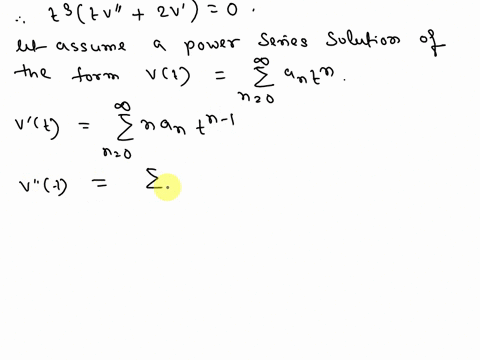 ∴ t⁹(tv'' + 2v') = 0 .
let assume a power series solution of
the form v(t) = ∑_{n=0}^{∞} aₙtⁿ.
v'(t) = ∑_{n=0}^{∞} n aₙ tⁿ⁻¹
v''(t) = ∑